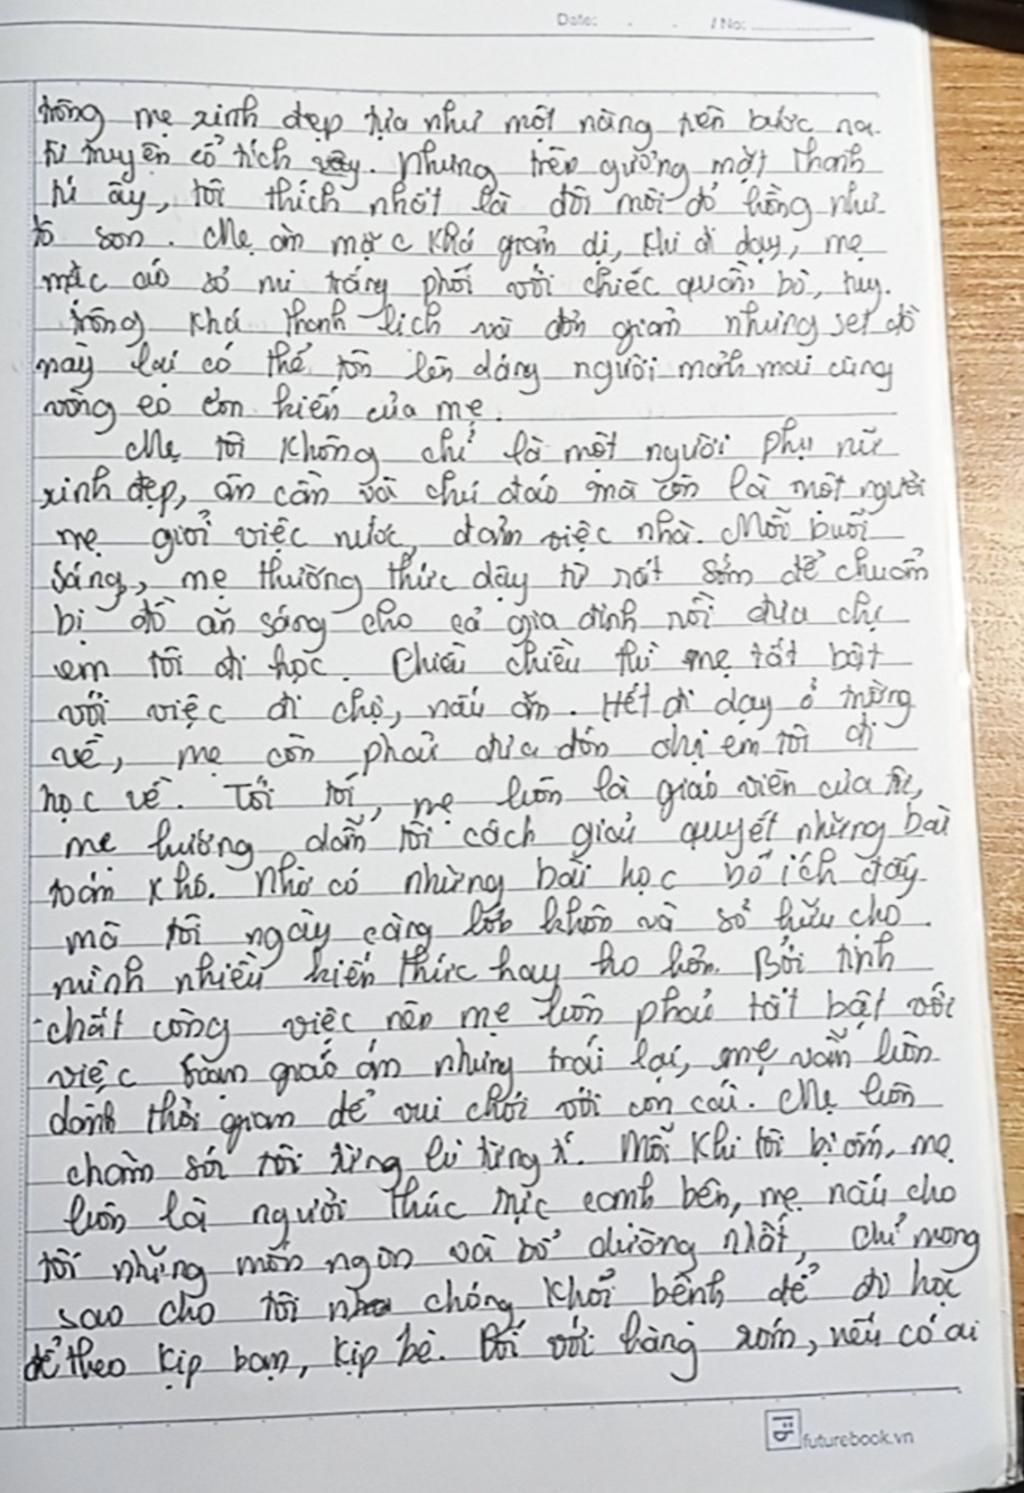 Date: . . / No:
trông mẹ xinh đẹp tựa như một nàng tiên bước ra
từ truyện cổ tích vậy. Nhưng trên gương mặt thanh
tú ấy, tôi thích nhất là đôi môi đỏ hồng như
tô son. Mẹ ăn mặc khá giản dị, khi đi dạy, mẹ
mặc áo sơ mi trắng phối với chiếc quần bò, tuy
trông khá thanh lịch và đơn giản nhưng set đồ
này lại có thể tôn lên dáng người mảnh mai cùng
vòng eo con kiến của mẹ.
Mẹ tôi không chỉ là một người phụ nữ
xinh đẹp, ân cần và chu đáo mà còn là một người
mẹ giỏi việc nước, đảm việc nhà. Mỗi buổi
sáng, mẹ thường thức dậy từ rất sớm để chuẩn
bị đồ ăn sáng cho cả gia đình rồi đưa chị
em tôi đi học. Chiều chiều thì mẹ tất bật
với việc đi chợ, nấu ăn. Hết đi dạy ở trường
về, mẹ còn phải đưa đón chị em tôi đi
học về. Tối tối, mẹ luôn là giáo viên của tôi,
mẹ hướng dẫn tôi cách giải quyết những bài
toán khó. Nhờ có những bài học bổ ích đấy
mà tôi ngày càng lớn khôn và sở hữu cho
mình nhiều kiến thức hay ho hơn. Bởi tính
chất công việc nên mẹ luôn phải tất bật với
việc soạn giáo án nhưng trái lại, mẹ vẫn luôn
dành thời gian để vui chơi với con cái. Mẹ luôn
chăm sóc tôi từng li từng tí. Mỗi khi tôi bị ốm, mẹ
luôn là người thúc trực cạnh bên, mẹ nấu cho
tôi những món ngon và bổ dưỡng nhất, chỉ mong
sao cho tôi chóng khỏi bệnh để đi học
để theo kịp bạn, kịp bè. Đối với hàng xóm, nếu có ai
futurebook.vn